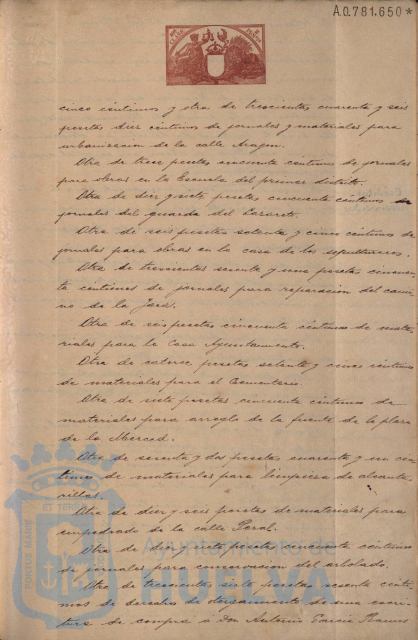 A.0.781.650*
cinco céntimos y otra de trescientas cuarenta y seis
pesetas diez céntimos de jornales y materiales para
urbanización de la calle Aragon.
Otra de trece pesetas cincuenta céntimos de jornales
para obras en la Escuela del primer distrito.
Otra de diez y siete pesetas cincuenta céntimos de
jornales del guarda del Lazareto.
Otra de seis pesetas setenta y cinco céntimos de
jornales para obras en la casa de los sepultureros.
Otra de trescientas sesenta y una pesetas cincuen-
ta céntimos de jornales para reparacion del cami-
no de la
Otra de seis pesetas cincuenta céntimos de mate-
riales para la Casa Ayuntamiento.
Otra de catorce pesetas setenta y cinco céntimos
de materiales para el Cementerio.
Otra de siete pesetas cincuenta céntimos de
materiales para arreglo de la fuente de la plaza
de la Merced.
Otra de sesenta y dos pesetas cuarenta y un cen-
timos de materiales para limpieza de alcanta-
rillas.
Otra de diez y seis pesetas de materiales para
empedrado de la calle Peral.
Otra de diez y siete pesetas cincuenta céntimos
de jornales para conservacion del arbolado.
Otra de trescientas siete pesetas sesenta cénti-
mos de derechos de otorgamiento de una escri-
tura de compra a don Antonio Garcia Ramos
Ayuntamiento de
HUELVA